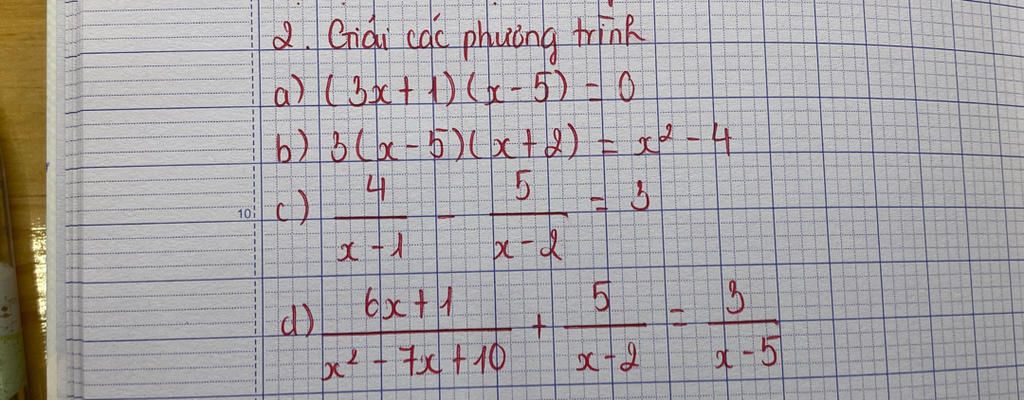 2. Giải các phương trình
a) (3x + 1)(x - 5) = 0
b) 3(x - 5)(x + 2) = x² - 4
10 c) 4/(x - 1) - 5/(x - 2) = 3
d) (6x + 1)/(x² - 7x + 10) + 5/(x - 2) = 3/(x - 5)